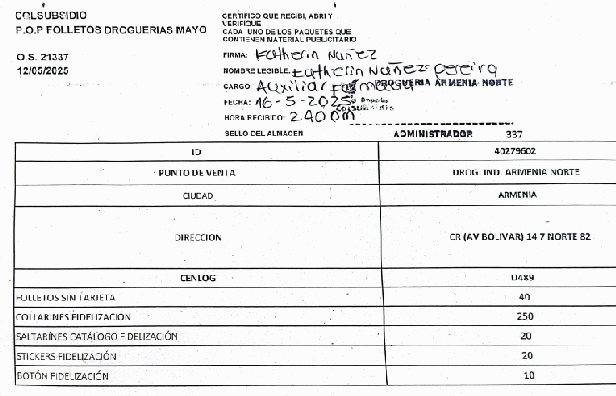 COLSUBSIDIO
P.O.P FOLLETOS DROGUERIAS MAYO
O.S. 21337
12/05/2025
CERTIFICO QUE RECIBI, ABRI Y
VERIFIQUE
CADA UNO DE LOS PAQUETES QUE
CONTIENEN MATERIAL PUBLICITARIO
FIRMA: Katherin Nuñez
NOMBRE LEGIBLE: Katherin Nuñez pereira
CARGO Auxiliar farmacia
DROGUERIA ARMENIA NORTE
FECHA: 16-5-2025
HORA RECIBIDO: 2:40 pm
SELLO DEL ALMACEN
ADMINISTRADOR 337
ID 40279602
PUNTO DE VENTA DROG. IND. ARMENIA NORTE
CIUDAD ARMENIA
DIRECCION CR (AV BOLIVAR) 14 7 NORTE 82
CENLOG U489
FOLLETOS SIN TARJETA 40
COLLARINES FIDELIZACION 250
SALTARINES CATÁLOGO FIDELIZACIÓN 20
STICKERS FIDELIZACIÓN 20
BOTÓN FIDELIZACIÓN 10